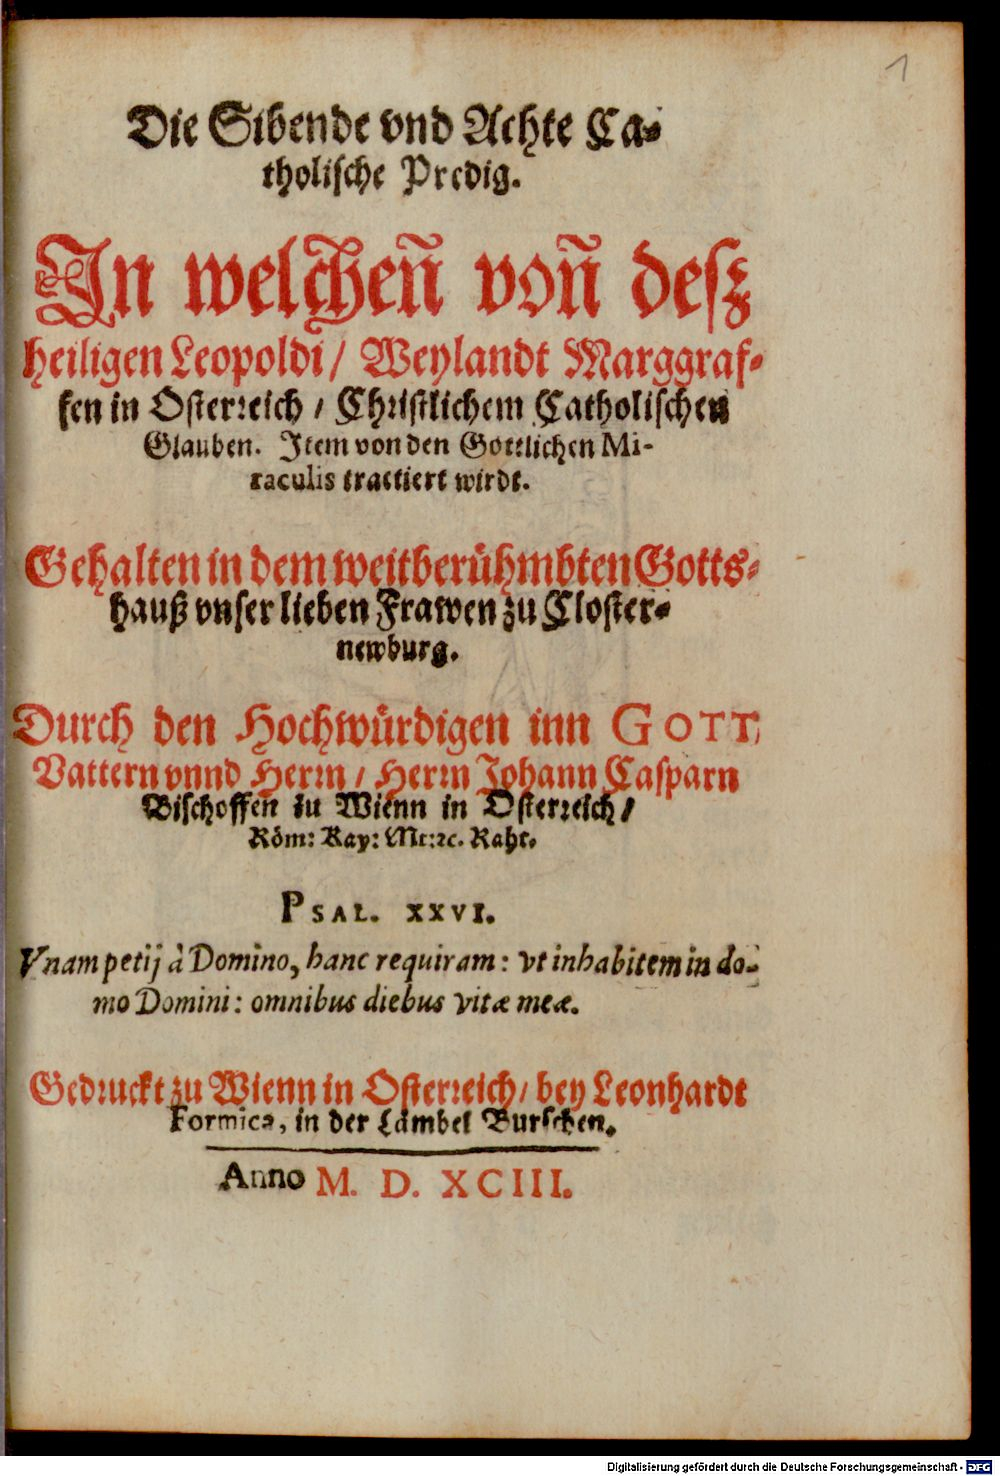 1
Die Sibende vnd Achte Ca-
tholische Predig.
In welcheñ voñ desz
heiligen Leopoldi / Weylandt Marggraf-
fen in Osterreich / Christlichem Catholischen
Glauben. Item von den Göttlichen Mi-
raculis tractiert wirdt.
Gehalten in dem weitberühmbten Gotts-
hauß vnser lieben Frawen zu Closter-
newburg.
Durch den Hochwürdigen inn GOTT
Vattern vnnd Herrn / Herrn Johann Casparn
Bischoffen zu Wienn in Osterreich /
Röm: Kay: Mt: ꝛc. Raht.
PSAL. XXVI.
Vnam petij à Domino, hanc requiram: vt inhabitem in do-
mo Domini: omnibus diebus vitæ meæ.
Gedruckt zu Wienn in Osterreich / bey Leonhardt
Formica, in der Lämbel Burschen.
Anno M. D. XCIII.
Digitalisierung gefördert durch die Deutsche Forschungsgemeinschaft - DFG